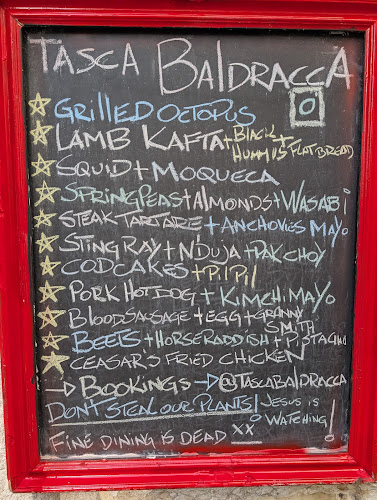 TASCA BALDRACCA
GRILLED OCTOPUS
LAMB KAFTA + BLACK HUMMUS + FLAT BREAD
SQUID + MOQUECA
SPRING PEAS + ALMONDS + WASABI
STEAK TARTARE + ANCHOVIES MAYO
STING RAY + N'DUJA + PAK CHOY
CODCAKES + PIL PIL
PORK HOT DOG + KIMCHI MAYO
BLOODSAUSAGE + EGG + GRANNY SMITH
BEETS + HORSERADDISH + PISTACHIO
CEASAR'S FRIED CHICKEN
→ BOOKINGS → @TASCABALDRACCA
DON'T STEAL OUR PLANTS! JESUS IS WATCHING!
FINE DINING IS DEAD XX